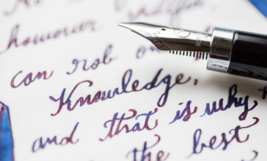 however
can rob o
Knowledge,
and that is why
the best